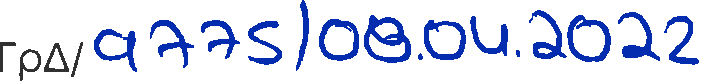 ΓρΔ/9775/08.04.2022